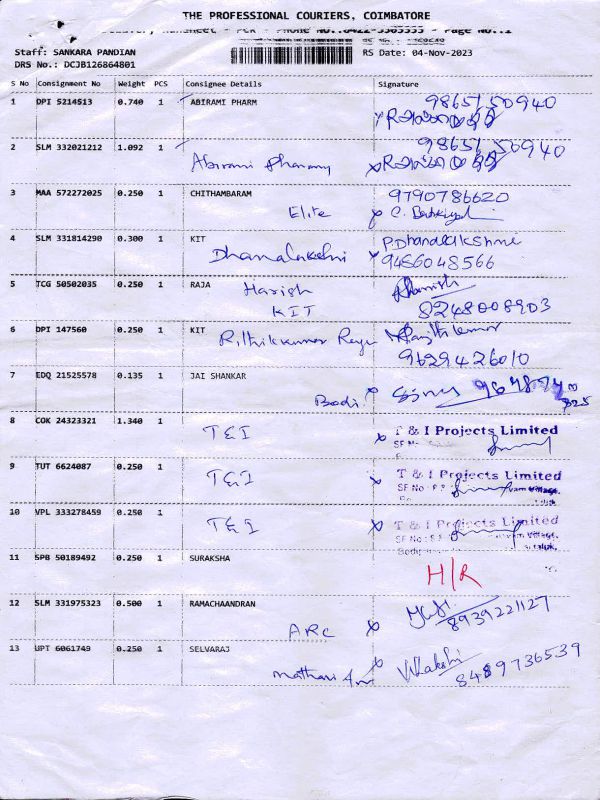 THE PROFESSIONAL COURIERS, COIMBATORE
Staff: SANKARA PANDIAN
RS Date: 04-Nov-2023
DRS No.: DCJB126864801
S No Consignment No Weight PCS Consignee Details Signature
1 DPI 5214513 0.740 1 ABIRAMI PHARM 9865150940
2 SLM 332021212 1.092 1 98651 50940
Abirami
3 MAA 572272025 0.250 1 CHITHAMBARAM 9790786620
Elite C.
4 SLM 331814290 0.300 1 KIT P.Dhanalakshmi
Dhanalakshmi 9486048566
5 TCG 50502035 0.250 1 RAJA Harish
KIT 8248008903
6 DPI 147560 0.250 1 KIT Rithikkumar
9629426010
7 EDQ 21525578 0.135 1 JAI SHANKAR
Bodi
8 COK 24323321 1.340 1 T&I T & I Projects Limited
9 TUT 6624087 0.250 1 T&I T & I Projects Limited
SF No
10 VPL 333278459 0.250 1 T&I T & I Projects Limited
SF No
11 SPB 50189492 0.250 1 SURAKSHA H/R
12 SLM 331975323 0.500 1 RAMACHAANDRAN
ARC 8939221127
13 UPT 6061749 0.250 1 SELVARAJ
8489736539